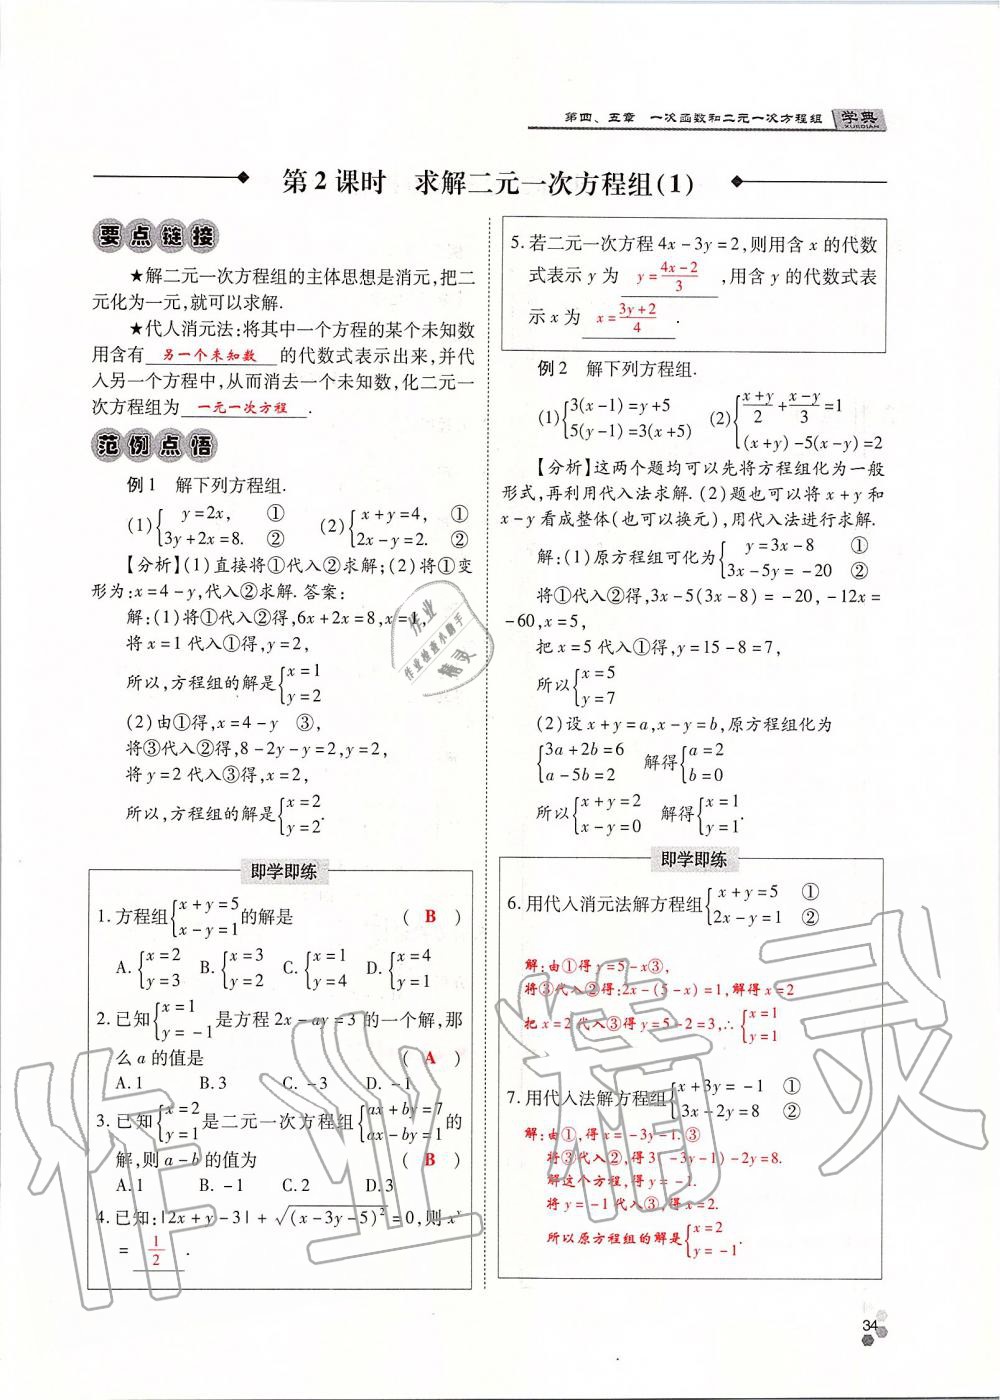 第四、五章　一次函数和二元一次方程组 学典
XUEDIAN
第2课时　求解二元一次方程组(1)
要点链接
★解二元一次方程组的主体思想是消元,把二
元化为一元,就可以求解.
★代人消元法:将其中一个方程的某个未知数
用含有 另一个未知数 的代数式表示出来,并代
入另一个方程中,从而消去一个未知数,化二元一
次方程组为 一元一次方程 .
范例点悟
例1　解下列方程组.
(1){y=2x, ① 3y+2x=8. ②　(2){x+y=4, ① 2x-y=2. ②
【分析】(1)直接将①代入②求解;(2)将①变
形为:x=4-y,代入②求解.答案:
解:(1)将①代入②得,6x+2x=8,x=1,
将x=1代入①得,y=2,
所以,方程组的解是{x=1 y=2
(2)由①得,x=4-y　③,
将③代入②得,8-2y-y=2,y=2,
将y=2代入③得,x=2,
所以,方程组的解是{x=2 y=2.
即学即练
1.方程组{x+y=5 x-y=1的解是 ( B )
A.{x=2 y=3　B.{x=3 y=2　C.{x=1 y=4　D.{x=4 y=1
2.已知{x=1 y=-1是方程2x-ay=3的一个解,那
么a的值是 ( A )
A.1　B.3　C.-3　D.-1
3.已知{x=2 y=1是二元一次方程组{ax+by=7 ax-by=1的
解,则a-b的值为 ( B )
A.1　B.-1　C.2　D.3
4.已知:|2x+y-3|+√(x-3y-5)²=0,则xʸ
= 1/2 .
5.若二元一次方程4x-3y=2,则用含x的代数
式表示y为 y=(4x-2)/3 ,用含y的代数式表
示x为 x=(3y+2)/4 .
例2　解下列方程组.
(1){3(x-1)=y+5 5(y-1)=3(x+5)　(2){(x+y)/2+(x-y)/3=1 (x+y)-5(x-y)=2
【分析】这两个题均可以先将方程组化为一般
形式,再利用代入法求解.(2)题也可以将x+y和
x-y看成整体(也可以换元),用代入法进行求解.
解:(1)原方程组可化为{y=3x-8 ① 3x-5y=-20 ②
将①代入②得,3x-5(3x-8)=-20,-12x=
-60,x=5,
把x=5代入①得,y=15-8=7,
所以{x=5 y=7
(2)设x+y=a,x-y=b,原方程组化为
{3a+2b=6 a-5b=2　解得{a=2 b=0
所以{x+y=2 x-y=0　解得{x=1 y=1.
即学即练
6.用代入消元法解方程组{x+y=5 ① 2x-y=1 ②
解:由①得y=5-x③,
将③代入②得:2x-(5-x)=1,解得x=2
把x=2代入③得y=5-2=3,∴{x=1 y=1
7.用代入法解方程组{x+3y=-1 ① 3x-2y=8 ②
解:由①,得x=-3y-1.③
将③代入②,得3(-3y-1)-2y=8.
解这个方程,得y=-1.
将y=-1代入③,得x=2.
所以原方程组的解是{x=2 y=-1.
34
作业
作业检查小助手
精灵
作业精灵